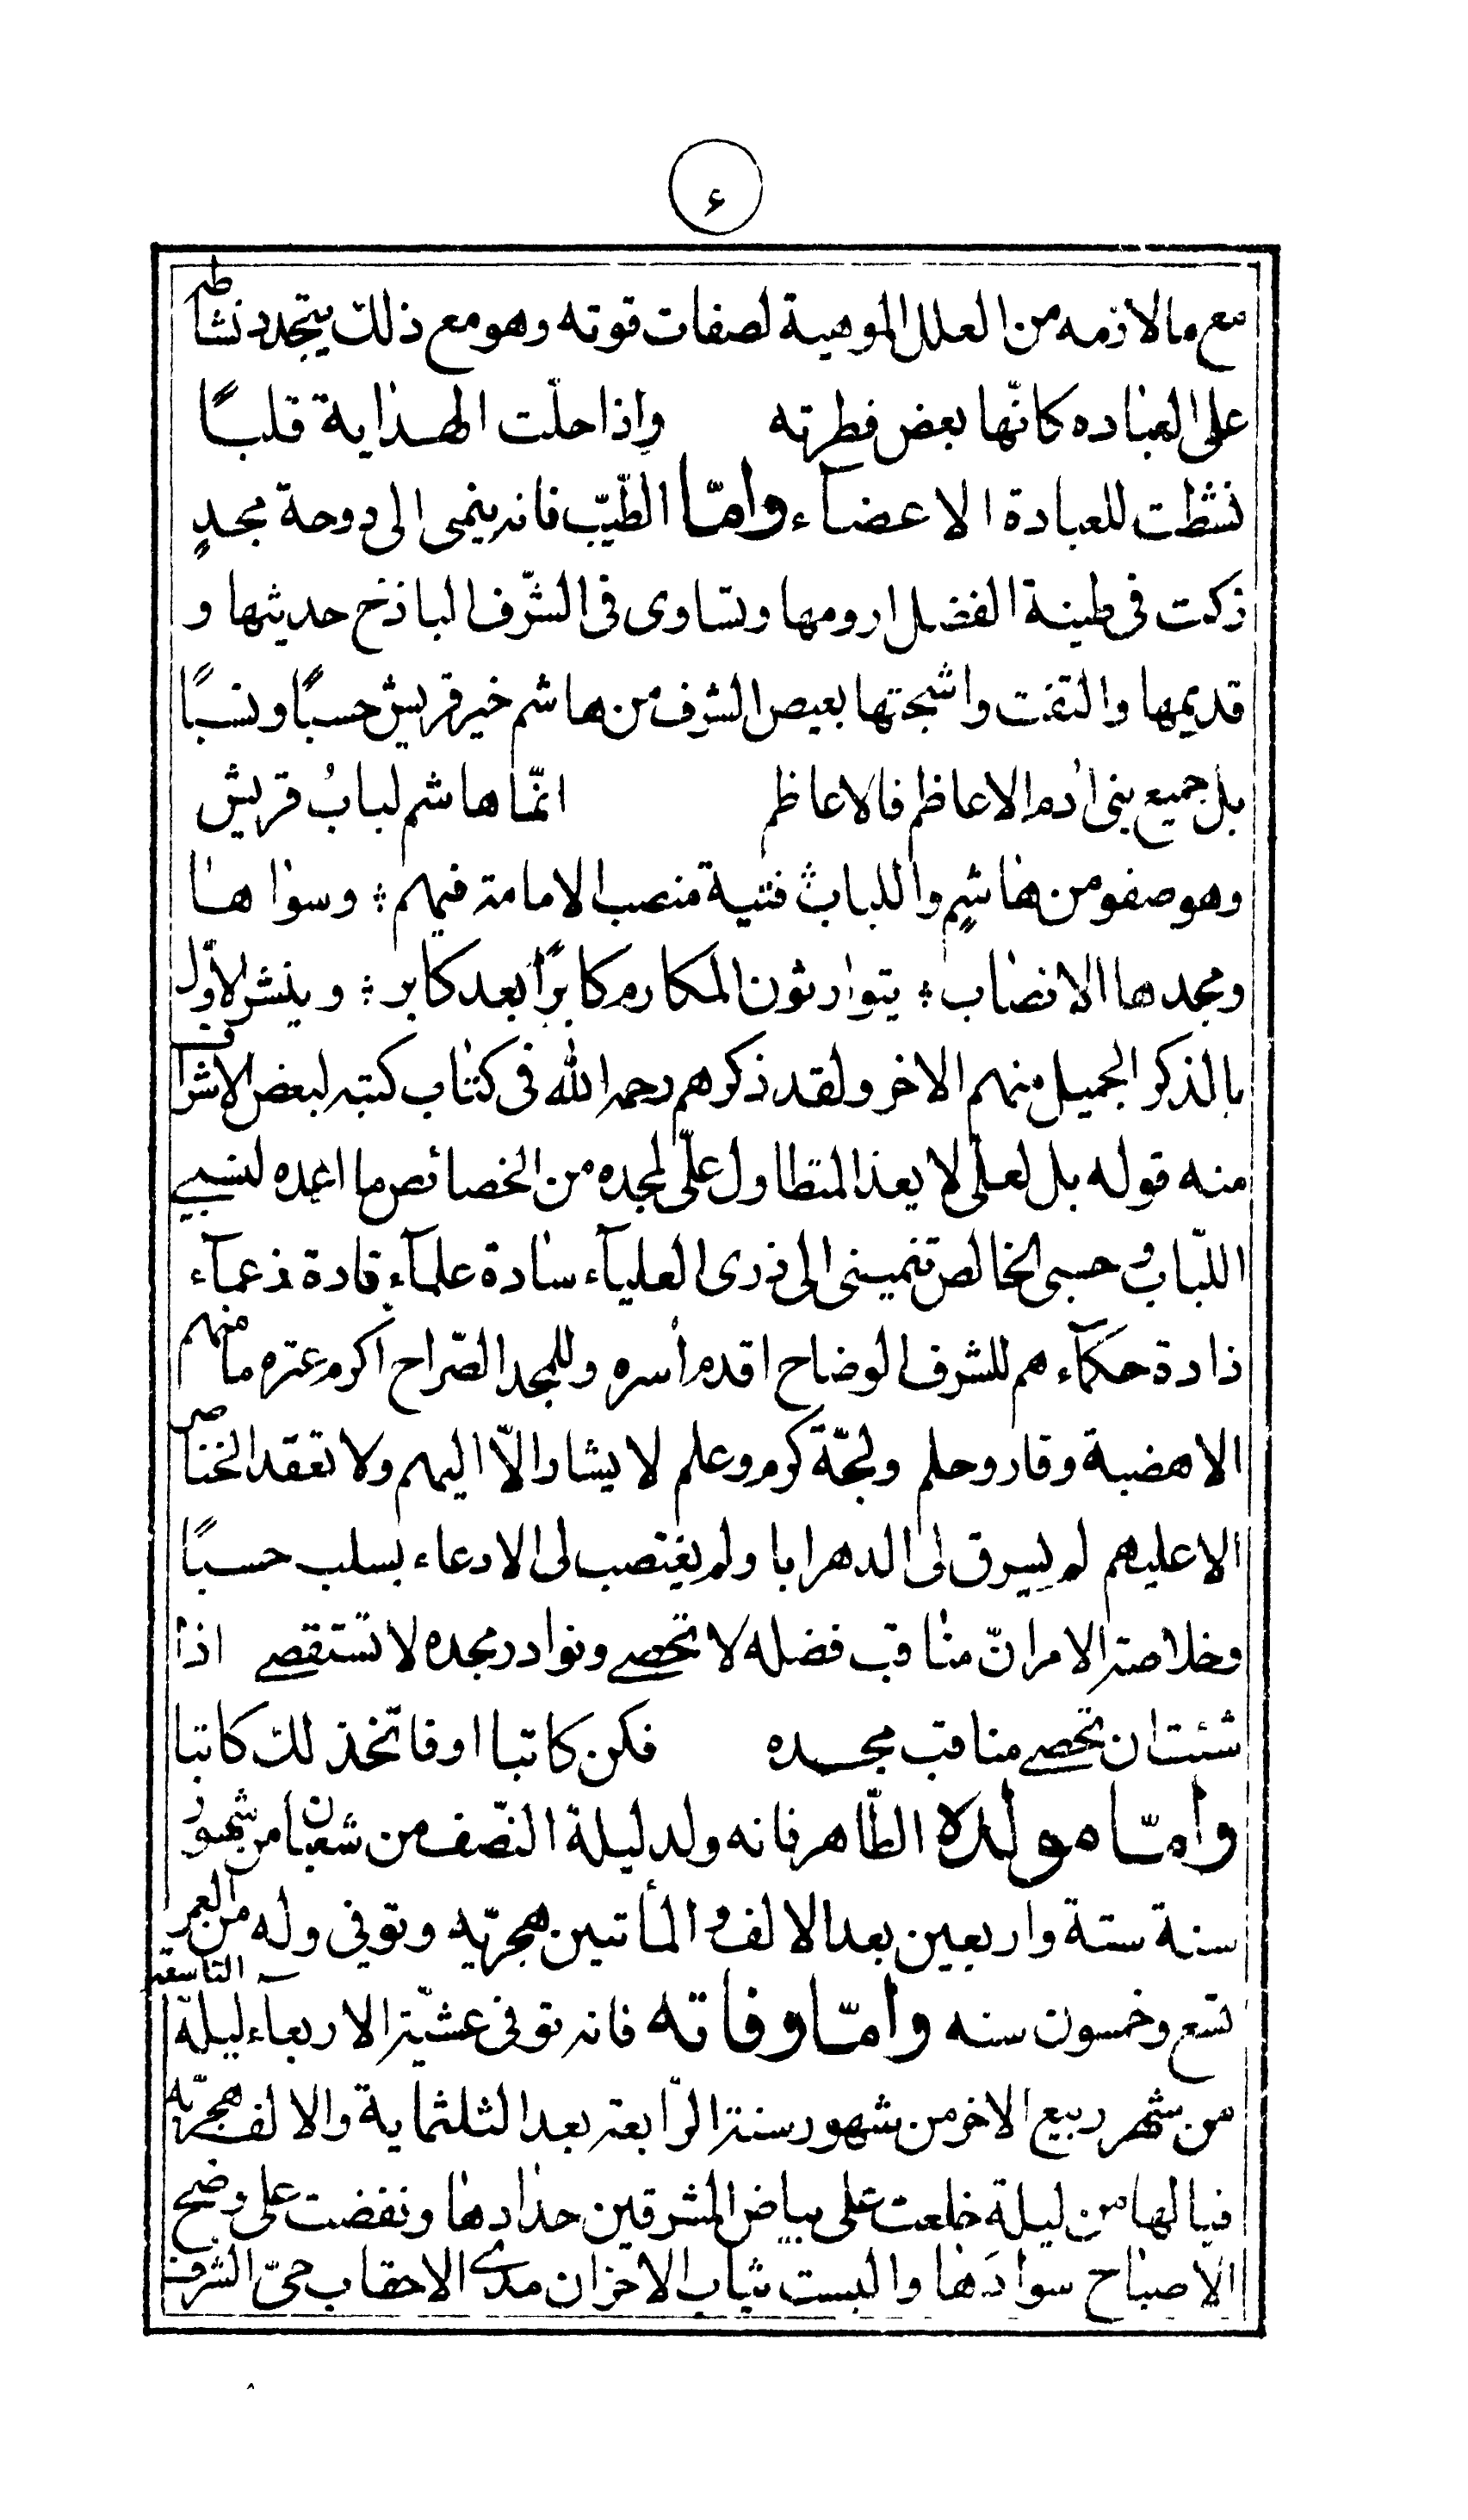 ٤
مع ما لازمه من العلل الموهية لصفات قوته وهو مع ذلك يتجدد نشاطه
على العباده كانّها بعض فطرته واذا حلّت الهداية قلبًا
نشطت للعبادة الاعضاء وامّا الطّيّب فانه ينمى الى دوحة مجدٍ
زكت فى طينة الفضل ارومها وتساوى فى الشّرف الباذخ حديثها و
قديمها والتفت واشجتها بعيص الشرف من هاشم خير قريش حسبًا ونسبًا
بل جميع بنى ادم الاعاظم فالاعاظم انّما هاشم لبابُ قريش
وهو صفو من هاشمٍ واللباب فتية منصب الامامة فيهم ؛ وسواها
ومجدها الانصاب ؛ يتوارثون المكارم كابرًا بعد كابر ؛ وينشر الاوّل
بالذكر الجميل منهم الاخر ولقد ذكرهم رحمه الله فى كتاب كتبه لبعض الاشراف
منه قوله بل لعلّى لا يعذ المتطاول علىّ لمجده من الخصائص ما اعده لنسبي
اللّباب وحسبى الخالص تنمينى الى ذرى العلياء سادة علماء قادة زعماء
ذادة حكماء هم للشرف الوضاح اقدم أسره وللمجد الصّراح اكرم عتره ما منهم
الا هضبة وقار وحلم ولجّة كرم وعلم لا يشار الّا اليهم ولا تعقد الخناصر
الا عليهم لم يسرق لى الدهر ابا ولم يغتصب لى الادعاء بسلب حسبًا
وخلاصة الامر انّ مناقب فضله لا تحصى ونوادر مجده لا تستقصى اذا
شئت ان تحصى مناقب مجده فكن كاتبا او فاتخذ لك كاتبا
وامّا مولده الطّاهر فانه ولد ليلة النّصف من شعبان من شهور
سنة ستة واربعين بعد الالف والمأتين هجريّه وتوفي وله من العمر
تسع وخمسون سنه وامّا وفاته فانه توفى عشيّة الاربعاء ليلة التاسعة
من شهر ربيع الاخر من شهور سنة الرّابعة بعد الثلثماية والالف هجريّه
فيا لها من ليلة خلعت على بياض المشرقين حدادها ونفضت على وضح
الاصباح سوادَها والبست ثياب الاحزان مدى الاحقاب حىّ الشرف